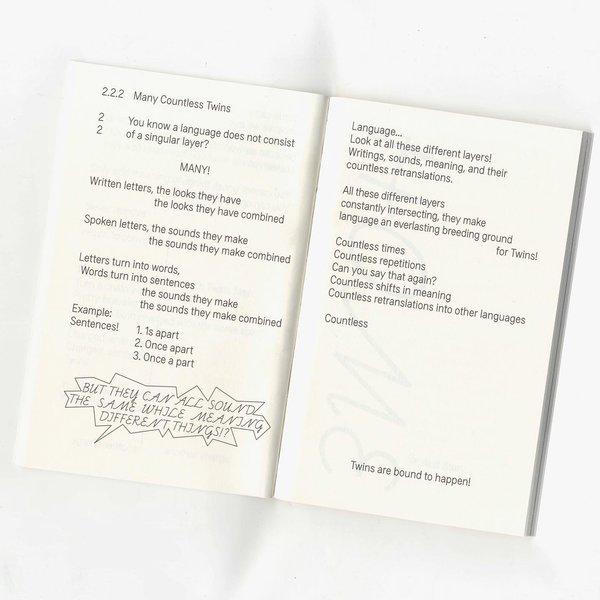 2.2.2 Many Countless Twins
2 You know a language does not consist
2 of a singular layer?
MANY!
Written letters, the looks they have
the looks they have combined
Spoken letters, the sounds they make
the sounds they make combined
Letters turn into words,
Words turn into sentences
the sounds they make
the sounds they make combined
Example:
Sentences! 1. 1s apart
2. Once apart
3. Once a part
BUT THEY CAN ALL SOUND
THE SAME WHILE MEANING
DIFFERENT THINGS!?
Language...
Look at all these different layers!
Writings, sounds, meaning, and their
countless retranslations.
All these different layers
constantly intersecting, they make
language an everlasting breeding ground
for Twins!
Countless times
Countless repetitions
Can you say that again?
Countless shifts in meaning
Countless retranslations into other languages
Countless
Twins are bound to happen!